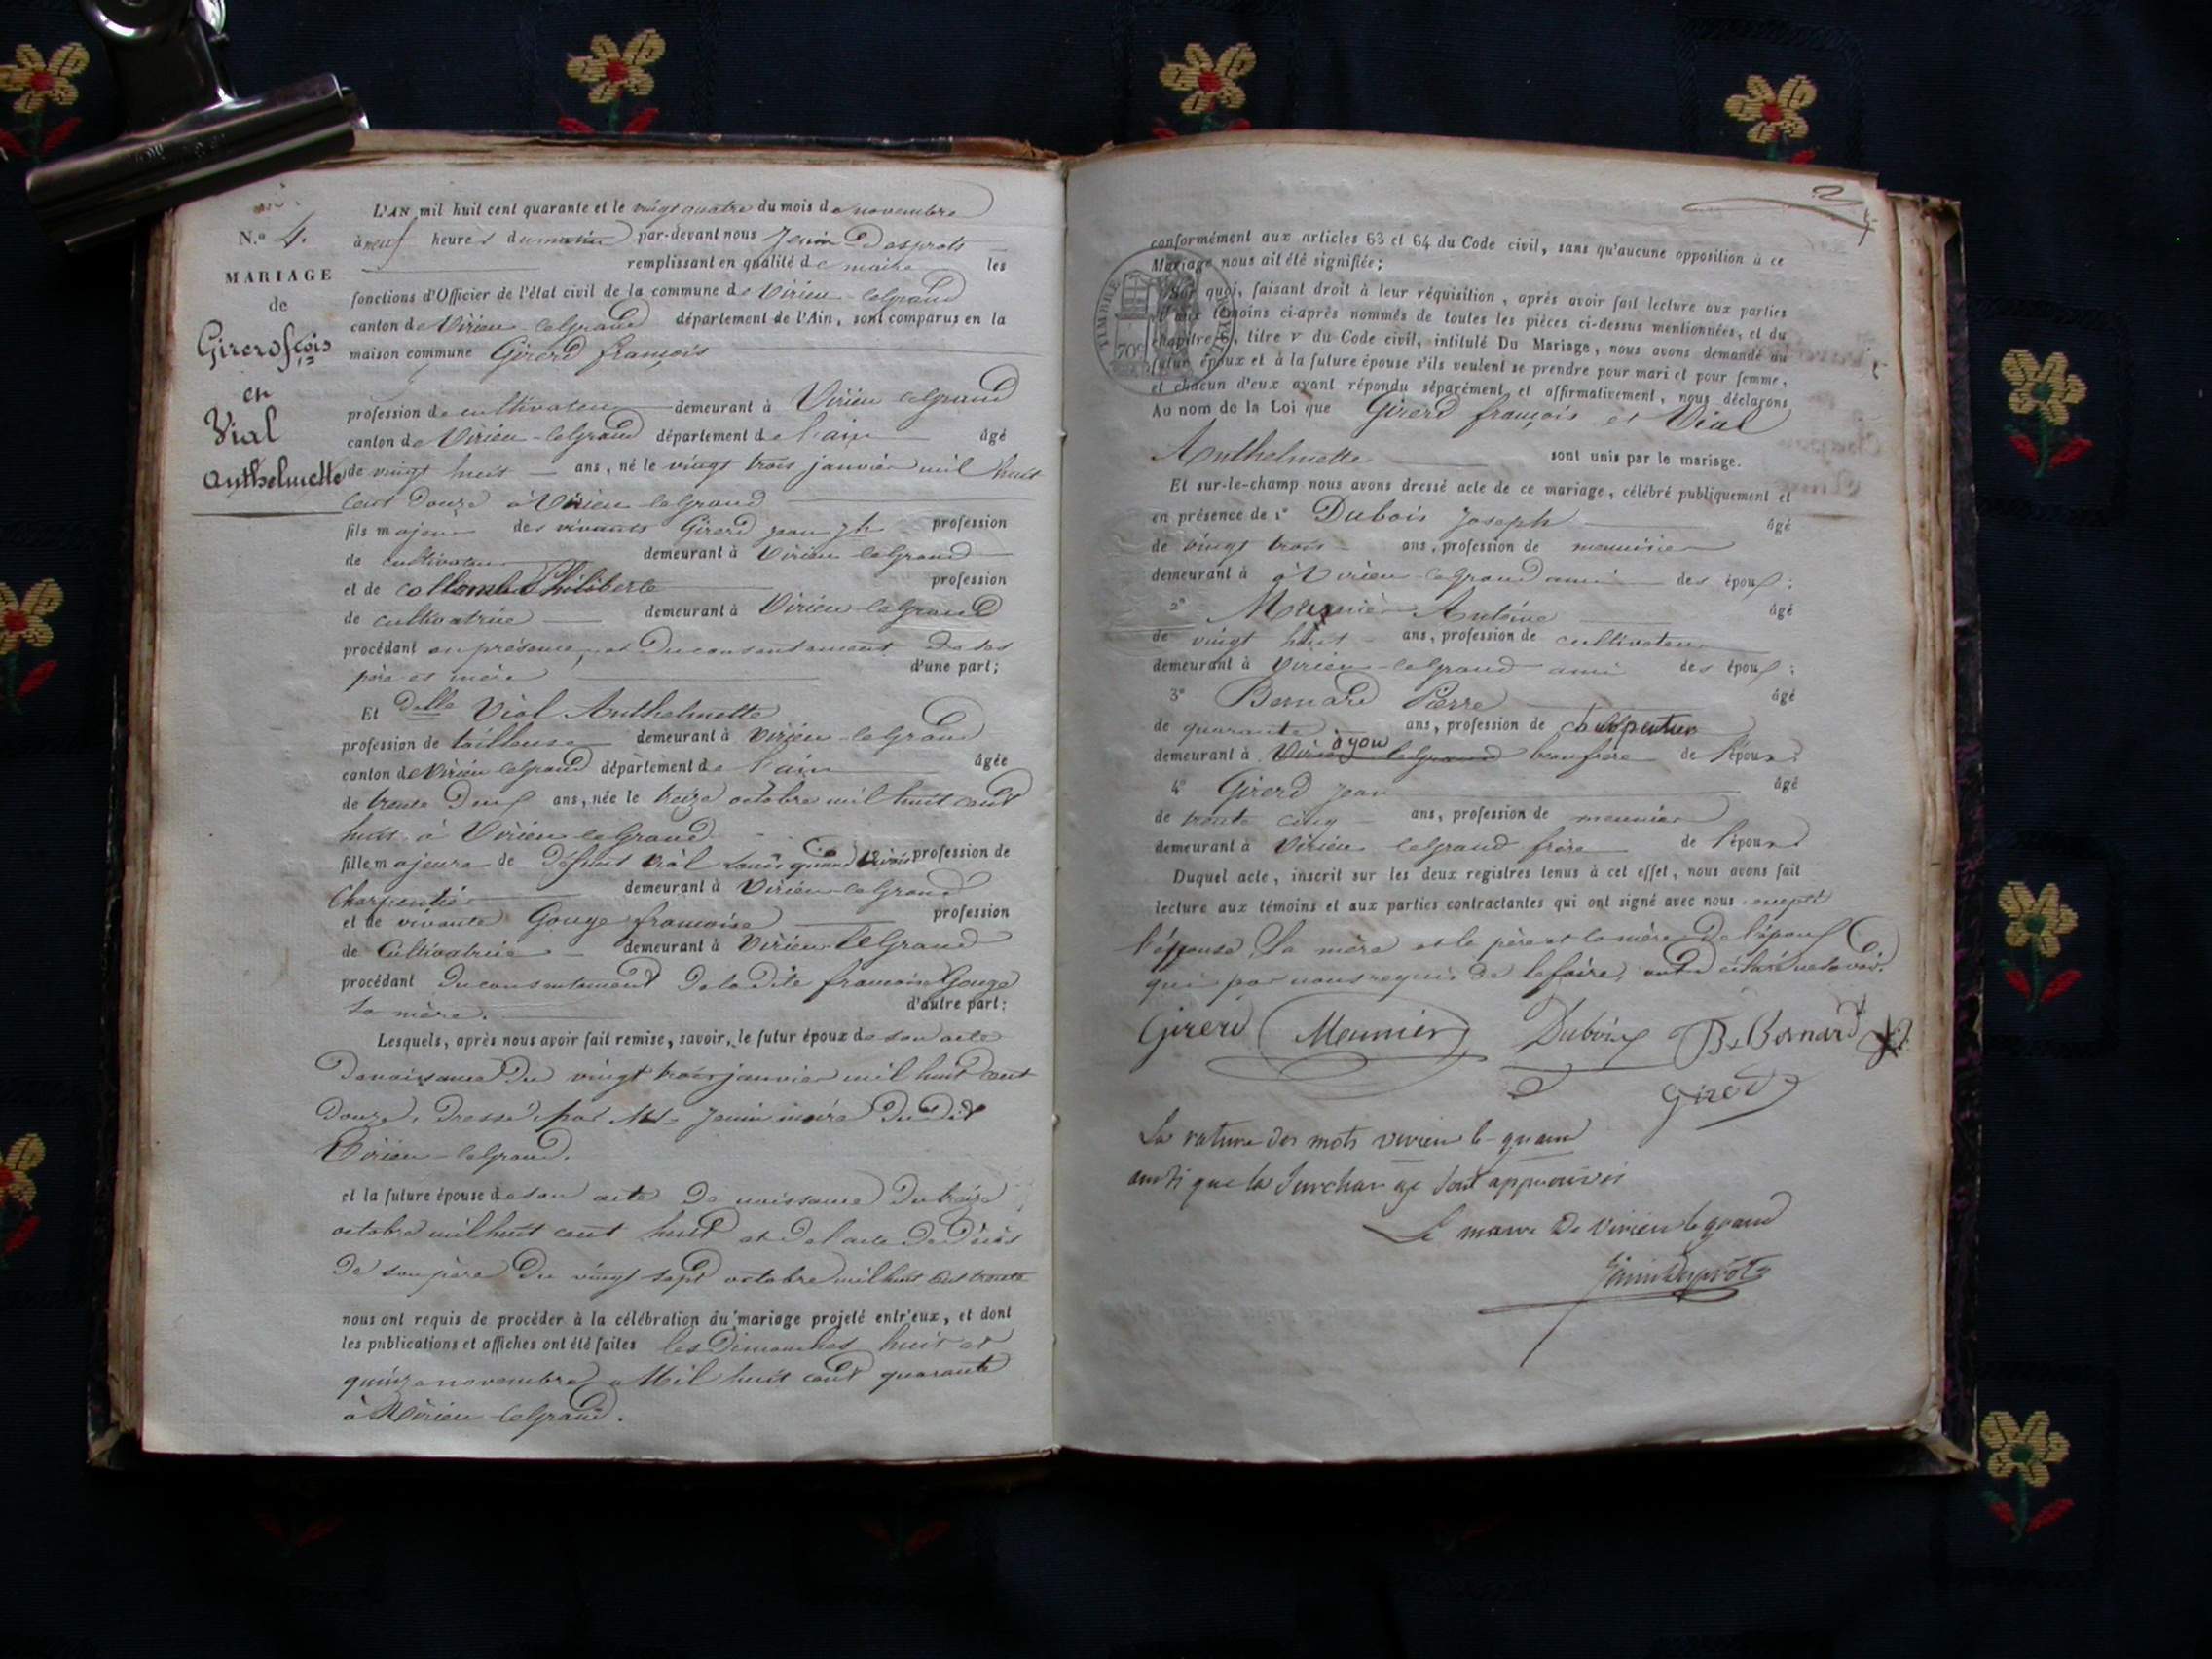 N.º 4.
MARIAGE
de
Girerd fçois
en
Vial
Anthelmette
L'AN mil huit cent quarante et le vingt quatre du mois de novembre
à neuf heures du matin par-devant nous Jenin Desprots
remplissant en qualité de maire les
fonctions d'Officier de l'état civil de la commune de Virieu-le-grand
canton de Virieu-le-grand département de l'Ain, sont comparus en la
maison commune Girerd françois
profession de cultivateur demeurant à Virieu le grand
canton de Virieu-le-grand département de l'ain âgé
de vingt huit ans, né le vingt trois janvier mil huit
cent douze à Virieu-le-grand
fils majeur des vivants Girerd jean jh profession
de cultivateur demeurant à Virieu-le-grand
et de collomb Philiberte profession
de cultivatrice demeurant à Virieu-le-grand
procédant en présence et du consentement de ses
père et mère d'une part;
Et delle Vial Anthelmette
profession de tailleuse demeurant à Virieu-le-grand
canton de Virieu le grand département de l'ain âgée
de trente deux ans, née le treize octobre mil huit cent
huit à Virieu-le-grand
fille majeure de défunt Vial Louis quand vivait profession de
Charpentier demeurant à Virieu-le-grand
et de vivante Gouge françoise profession
de Cultivatrice demeurant à Virieu-le-grand
procédant du consentement de la dite françoise Gouge
sa mère. d'autre part;
Lesquels, après nous avoir fait remise, savoir, le futur époux de son acte
de naissance du vingt trois janvier mil huit cent
douze, dressé par Mr Jenin maire du dit
Virieu-le-grand.
et la future épouse de son acte de naissance du treize
octobre mil huit cent huit et de l'acte de décès
de son père du vingt sept octobre mil huit cent trente
nous ont requis de procéder à la célébration du mariage projeté entr'eux, et dont
les publications et affiches ont été faites les Dimanches huit et
quinze novembre Mil huit cent quarante
à Virieu-le-grand.
conformément aux articles 63 et 64 du Code civil, sans qu'aucune opposition à ce
Mariage nous ait été signifiée;
TIMBRE ROYAL
70c
Sur quoi, faisant droit à leur réquisition, après avoir fait lecture aux parties
et aux témoins ci-après nommés de toutes les pièces ci-dessus mentionnées, et du
chapitre 6, titre v du Code civil, intitulé Du Mariage, nous avons demandé au
futur époux et à la future épouse s'ils veulent se prendre pour mari et pour femme,
et chacun d'eux ayant répondu séparément et affirmativement, nous déclarons
Au nom de la Loi que Girerd françois et Vial
Anthelmette sont unis par le mariage.
Et sur-le-champ nous avons dressé acte de ce mariage, célébré publiquement et
en présence de 1º Dubois Joseph âgé
de vingt trois ans, profession de menuisier
demeurant à à Virieu-le-grand ami des époux;
2º Meunier Antoine âgé
de vingt huit ans, profession de cultivateur
demeurant à Virieu-le-grand ami des époux;
3º Bernard Pierre âgé
de quarante ans, profession de charpentier
demeurant à Virieu le grand àyou beau frère de l'épouse
4º Girerd jean âgé
de trente cinq ans, profession de meunier
demeurant à Virieu le grand frère de l'époux
Duquel acte, inscrit sur les deux registres tenus à cet effet, nous avons fait
lecture aux témoins et aux parties contractantes qui ont signé avec nous excepté
l'épouse sa mère et le père et la mère de l'époux
qui par nous requis de le faire, ont déclaré ne savoir.
Girerd Meunier Dubois Bernard
Girerd
La rature des mots virieu le grand
ainsi que la surcharge sont approuvés
Le maire de virieu le grand
Jenin Desprots